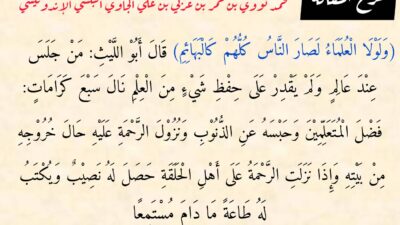 محمد نووي بن عمر بن عربي بن علي الجاوي البنتني الإندونيسي
(وَلَوْلَا الْعُلَمَاءُ لَصَارَ النَّاسُ كُلُّهُمْ كَالْبَهَائِمِ) قَالَ أَبُو اللَّيْثِ: مَنْ جَلَسَ
عِنْدَ عَالِمٍ وَلَمْ يَقْدِرْ عَلَى حِفْظِ شَيْءٍ مِنَ الْعِلْمِ نَالَ سَبْعَ كَرَامَاتٍ:
فَضْلَ الْمُتَعَلِّمِيْنَ وَحَبْسَهُ عَنِ الذُّنُوْبِ وَنُزُوْلَ الرَّحْمَةِ عَلَيْهِ حَالَ خُرُوْجِهِ
مِنْ بَيْتِهِ وَإِذَا نَزَلَتِ الرَّحْمَةُ عَلَى أَهْلِ الْحَلَقَةِ حَصَلَ لَهُ نَصِيْبٌ وَيُكْتَبُ
لَهُ طَاعَةً مَا دَامَ مُسْتَمِعًا